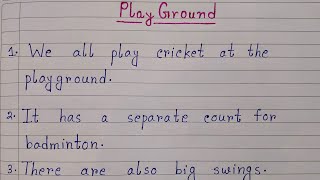 Play Ground
1. We all play cricket at the
playground.
2. It has a separate court for
badminton.
3. There are also big swings.